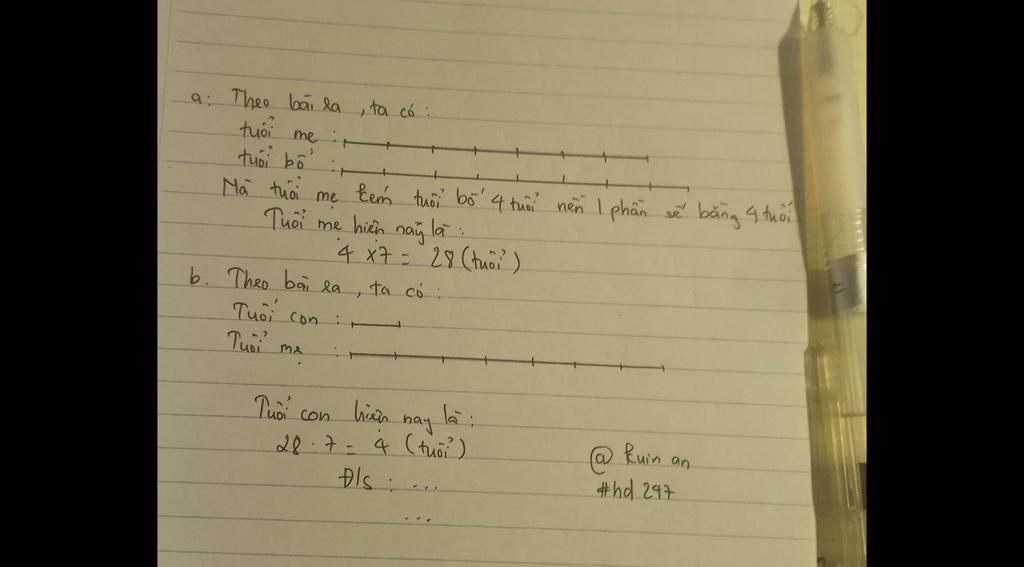 a: Theo bài ra, ta có:
tuổi mẹ:
tuổi bố:
Mà tuổi mẹ kém tuổi bố 4 tuổi nên 1 phần sẽ bằng 4 tuổi
Tuổi mẹ hiện nay là:
4 x 7 = 28 (tuổi)
b. Theo bài ra, ta có:
Tuổi con:
Tuổi mẹ:
Tuổi con hiện nay là:
28 : 7 = 4 (tuổi)
Đ/s: ...
...
@ kuin an
#hd 247